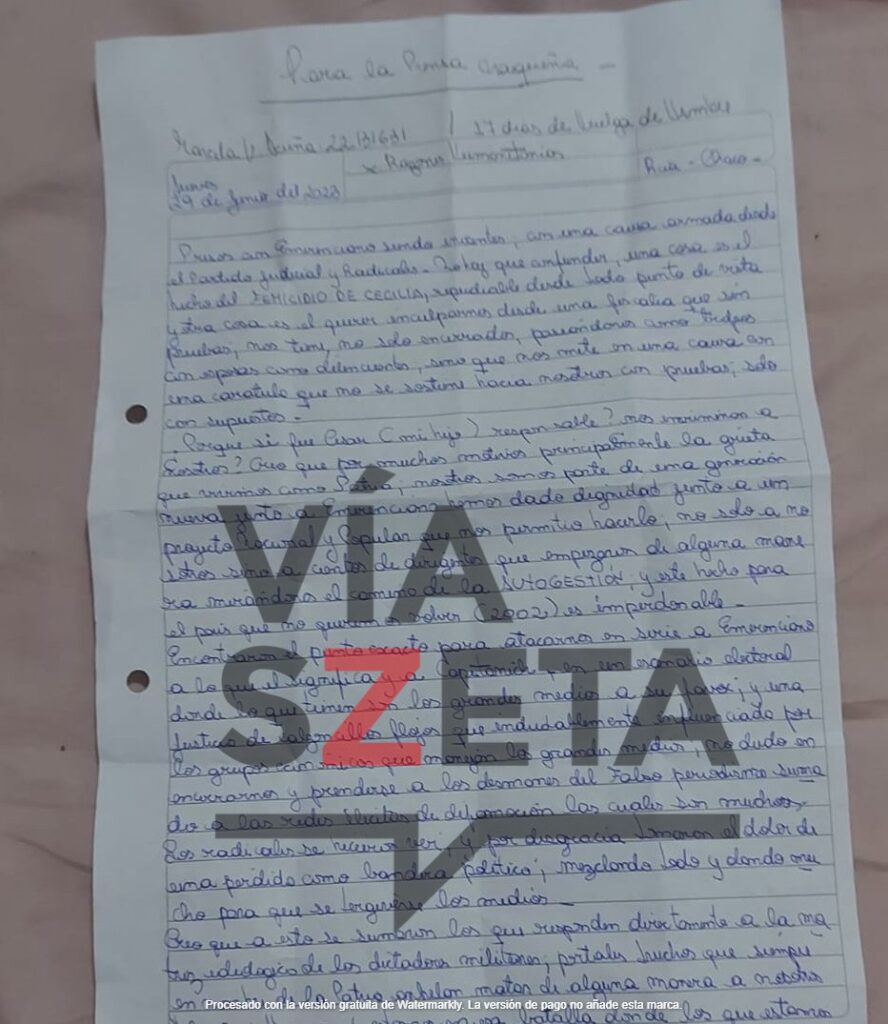 Para la Prensa Chaqueña -
Marcela V Acuña 22131631 / 17 dias de Huelga de Hambre
Jueves x Razones Humanitarias Rcia - Chaco -
29 de Junio del 2023
Presos con Emerenciano siendo inocentes; en una causa armada desde
el Partido Judicial y Radicales - No hay que confundir, una cosa es el
hecho del FEMICIDIO DE CECILIA, repudiable desde todo punto de vista
y otra cosa es el querer inculparnos desde una fiscalia que sin
pruebas, nos tiene, no solo encerrados, paseandonos como trofeos
con esposas como delincuentes, sino que nos mete en una causa con
una caratula que no se sostiene hacia nosotros con pruebas, solo
con supuestos -
Porque si fue Cesar (mi hijo) responsable? nos incriminan a
nosotros? Creo que por muchos motivos principalmente la grieta
que vivimos como Patria, nosotros somos parte de una generación
nueva junto a Emerenciano hemos dado dignidad junto a un
proyecto Nacional y Popular que nos permitio hacerlo, no solo a no
sotros sino a cientos de dirigentes que empezaron de alguna mane
ra mirándonos el camino de la AUTOGESTIÓN; y este hecho para
el pais que no queremos volver (2002) es imperdonable -
Encontraron el punto exacto para atacarnos en serie a Emerenciano
a lo que el significa y a Capitanich, en un escenario electoral
donde lo que tienen son los grandes medios a su favor; y una
Justicia de calzoncillos flojos que indudablemente influenciado por
los grupos económicos que manejan los grandes medios, no dudo en
encerrarnos y prenderse a los desmanes del Falso periodismo suma
do a las redes ilicitas de difamación las cuales son muchas,
Los radicales se hicieron ver, y por desgracia tomaron el dolor de
una perdida como bandera politica; mezclando todo y dando mu
cho para que se tergiverse los medios -
Creo que a esto se sumaron los que responden directamente a la ma
triz ideologica de los dictadores militares; portales truchos que siempre
en de la Patria anhelan matar de alguna manera a nosotros
en una batalla donde los que estamos
VÍA
SZETA
Procesado con la versión gratuita de Watermarkly. La versión de pago no añade esta marca.